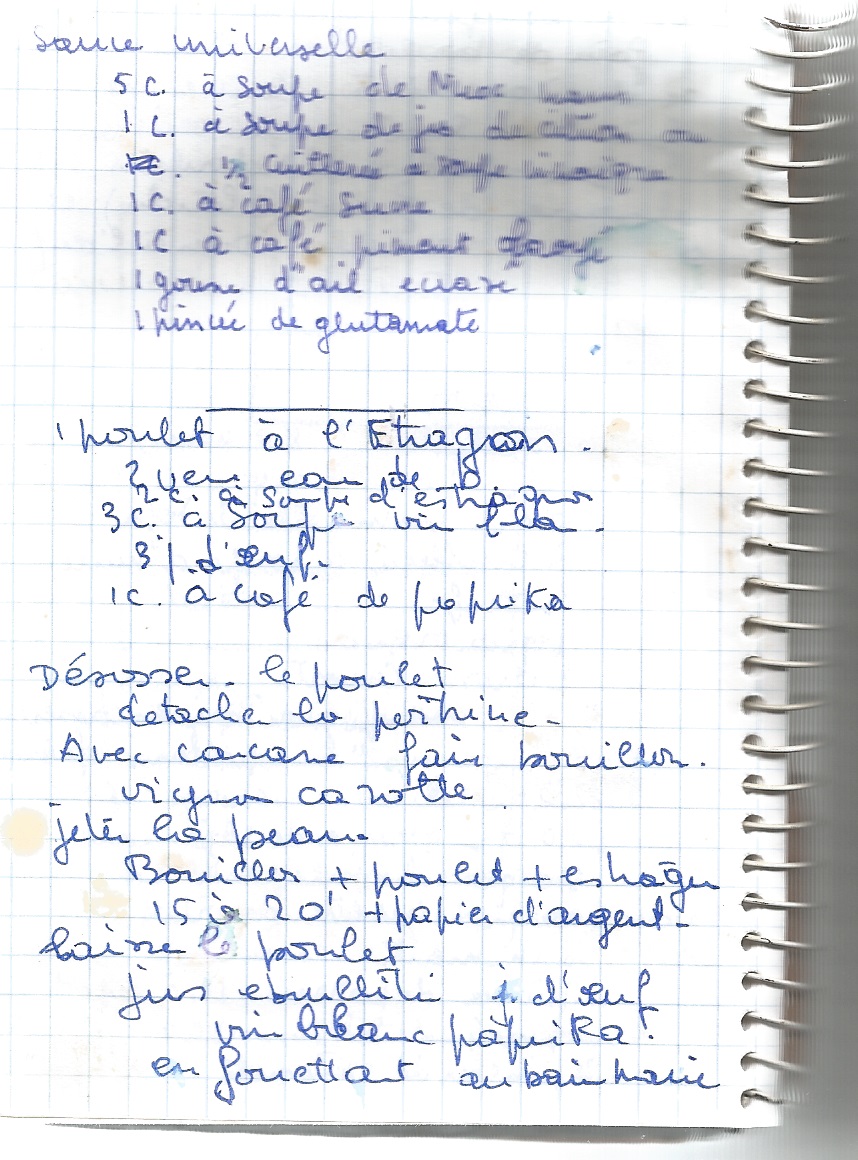 sauce universelle
5 C. à soupe de Nuoc mam
1 C. à soupe de jus de citron ou
1/2 cuillerée a soupe vinaigre
1C. à café sucre
1C à café piment
1 gousse d'ail ecrasé
1 pincée de glutamate
1 poulet à l'Estragon.
2 verr eau de
2 c. à soupe d'estragon
3 C. à soupe vin bla.
3 j. d'œuf.
1c. à café de paprika
Désosser. le poulet
detache la poitrine.
Avec carcasse fair bouillon.
oignon carotte
jeter la peau.
Bouillon + poulet + estragon
15 à 20' + papier d'argent.
laisse le poulet
jus ebulliti j. d'œuf
vin blanc paprika!
en fouettant au bain marie